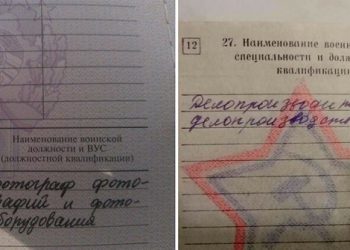 Наименование воинской
должности и ВУС
(должностной квалификации)
фотограф фото-
графий и фото-
оборудования
12
27. Наименование воен
специальности и долж
квалификации
Делопроизводи
делопроизводств